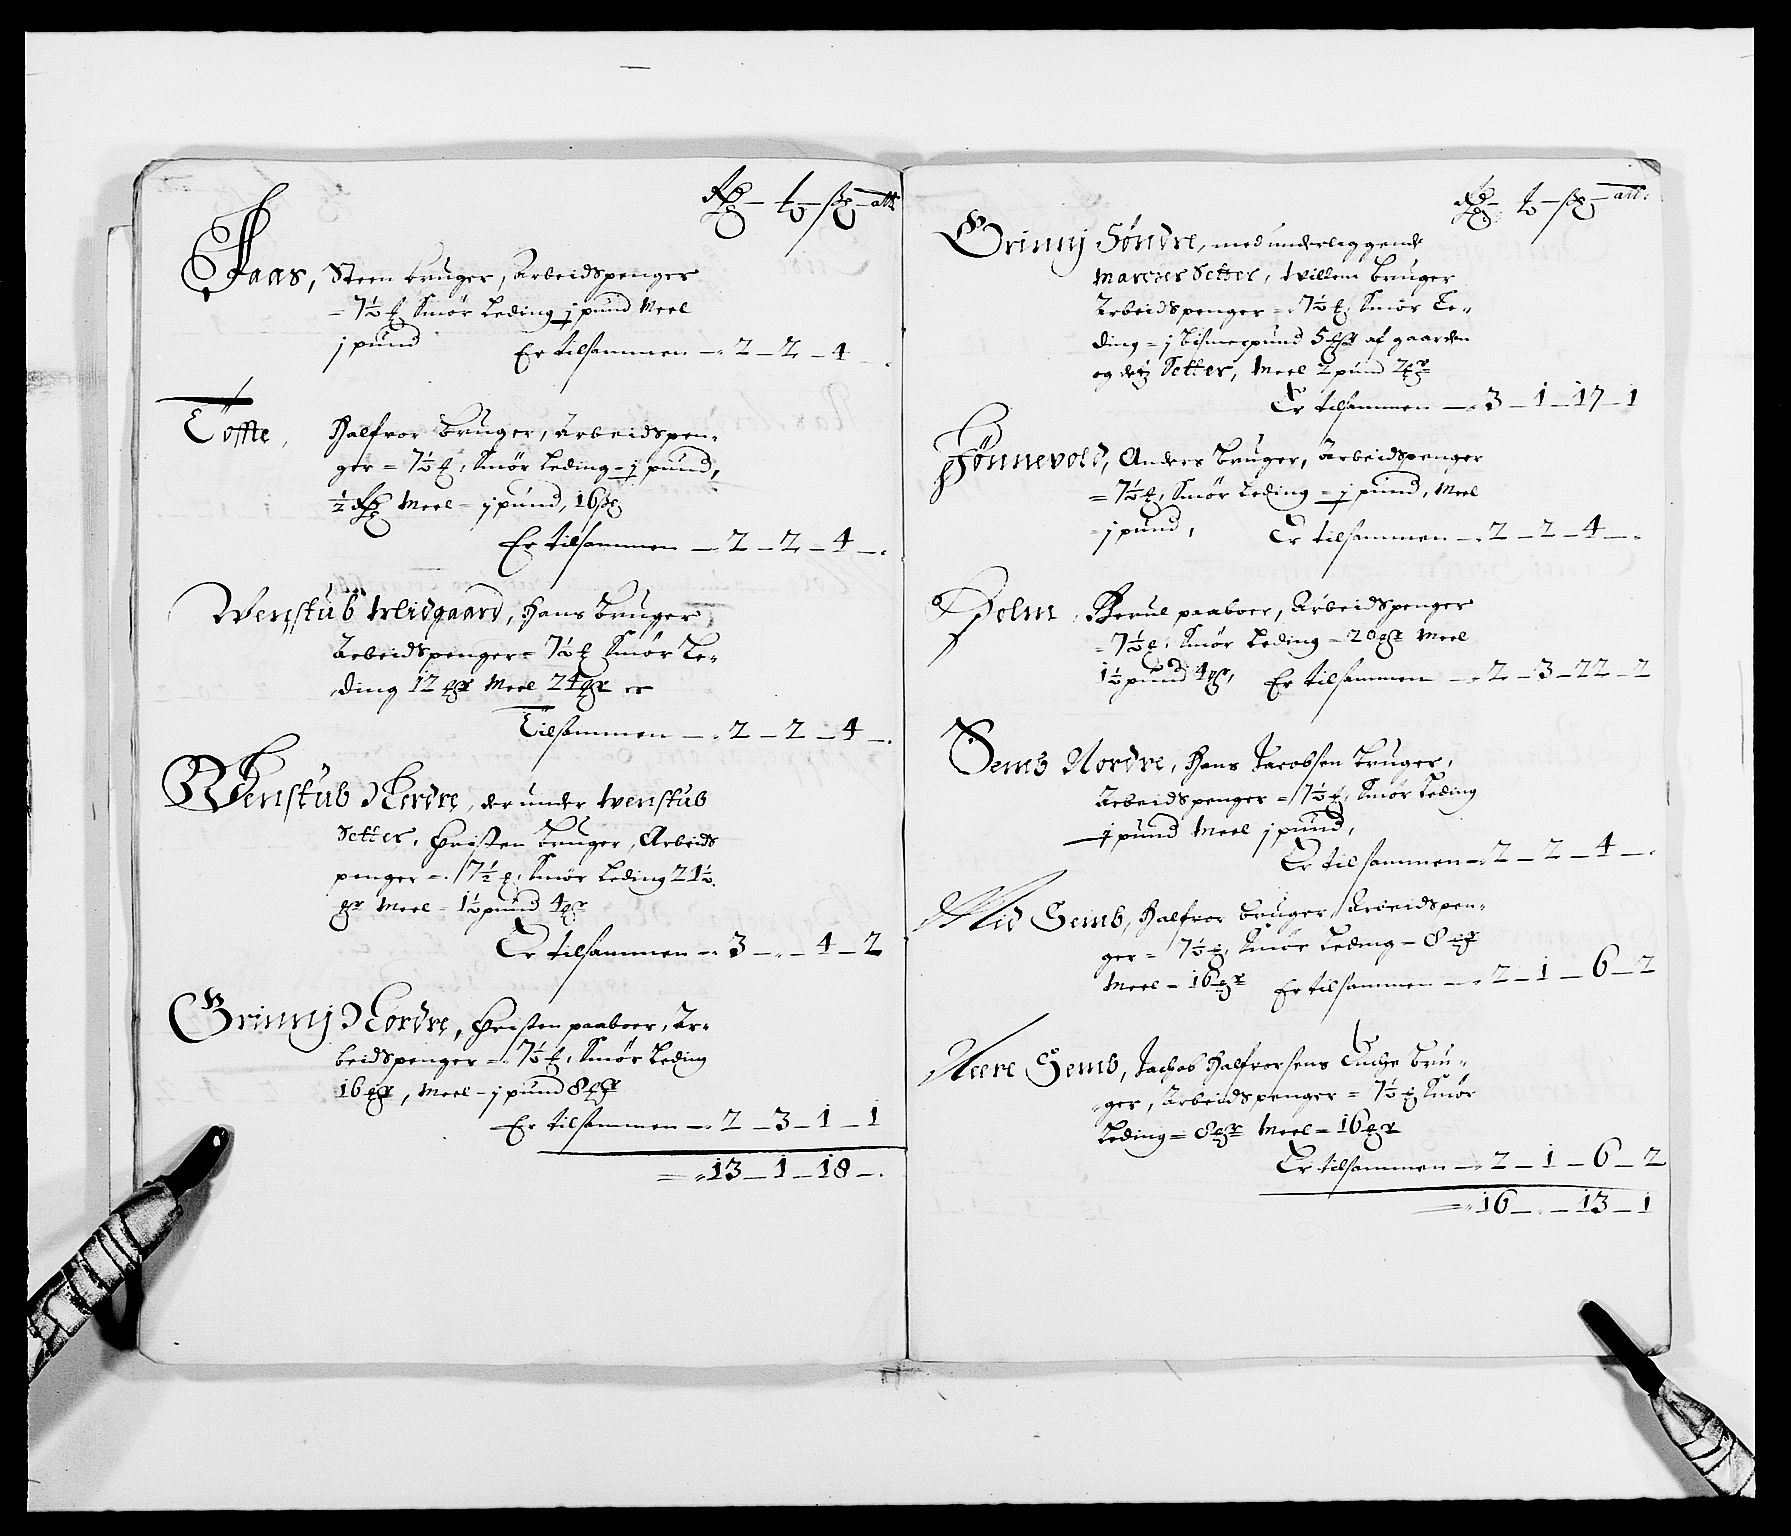 Rdr – t – ſs – alb
Faas, Steen bruger, Arbeidspenger
= 7½ t Smör Leding j pund Meel
j pund Er tilsammen – 2 – 2 – 4 – .
Töffte, Halfvor Bruger, Arbeidspen-
ger = 7½ t, Smör Leding – j pund,
½ Rdr Meel – j pund, 16 ſs
Er tilsammen – 2 – 2 – 4 – .
Wenstub Meidgaard, Hans Bruger
Arbeidspenger = 7½ t Smör Le-
ding 12 mr Meel 24 mr er
Tilsammen – 2 – 2 – 4 – .
Wenstub Nerdre, der under Wenstub
Setter, Christen Bruger, Arbeids
penger = 7½ t, Smör Leding 21½
mr Meel – 1½ pund 4 mr
Er tilsammen – 3 – „ – 4 – 2
Grinnj Nordre, Christen paaboer, Ar-
beidspenger = 7½ t, Smör Leding
16 mr, Meel – j pund 8 mr
Er tilsammen – 2 – 3 – 1 – 1
= 13 – 1 – 18 – .
Rdr – t – ſs – alb:
Grinnj Söndre, med underliggende
Setter, Willem Bruger
Arbeidspenger = 7½ t, Smör Le-
ding = j Bismerpund 5 mr af gaarden
og Setter, Meel 2 pund 2 mr
Er tilsammen – 3 – 1 – 17 – 1
Fönnevold, Anders Bruger, Arbeidspenger
= 7½ t, Smör Leding = j pund, Meel
– j pund, Er tilsammen – 2 – 2 – 4 – .
Holm, paaboer, Arbeidspenger
= 7½ t, Smör Leding – 20 mr Meel
1½ pund 4 mr, Er tilsammen – 2 – 3 – 22 – 2
Semb Nordre, Hans Jacobsen Bruger,
Arbeidspenger = 7½ t, Smör Leding
– j pund Meel j pund,
Er tilsammen – 2 – 2 – 4 – .
Mid Semb, Halfvor bruger, Arbeidspen-
ger = 7½ t, Smör Leding – 8 mr
Meel – 16 mr Er tilsammen – 2 – 1 – 6 – 2
Neere Semb, Jachob Halfvorsens Encke Bru-
ger, Arbeidspenger = 7½ t Smör
Leding = 8 mr Meel – 16 mr
Er tilsammen – 2 – 1 – 6 – 2
= 16 – „ – 13 – 1